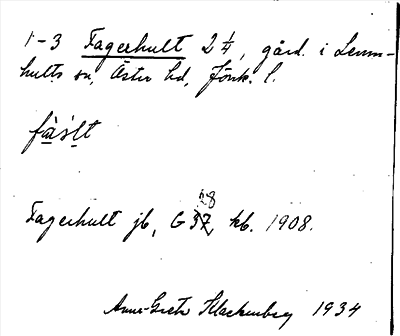 1-3 Fagerhult 2 1/4, gård. i Lemn-
hults sn, Östra hd, Jönk. l.
Fagerhult jb, G 37, kb. 1908.
28
Anna-Greta Hackenberg 1934